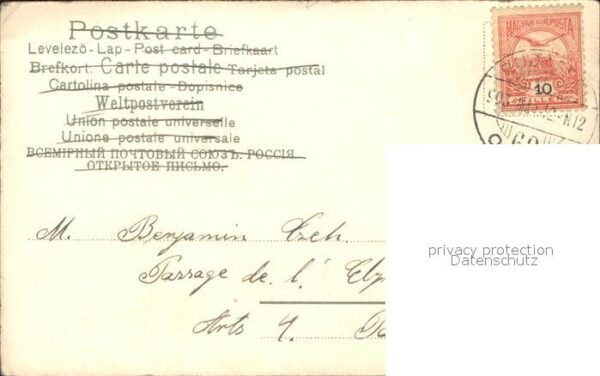 Postkarte
Levelezö-Lap-Post card-Briefkaart
Brefkort. Carte postale Tarjeta postal
Cartolina postale-Dopisnice
Weltpostverein
Union postale universelle
Unione postale universale
ВСЕМІРНЫЙ ПОЧТОВЫЙ СОЮЗЪ. РОССІЯ
ОТКРЫТОЕ ПИСЬМО.
MAGYAR KIR. POSTA
10
M. Benjamin Czeh.
Passage de l'
Arts 4.
privacy protection
Datenschutz